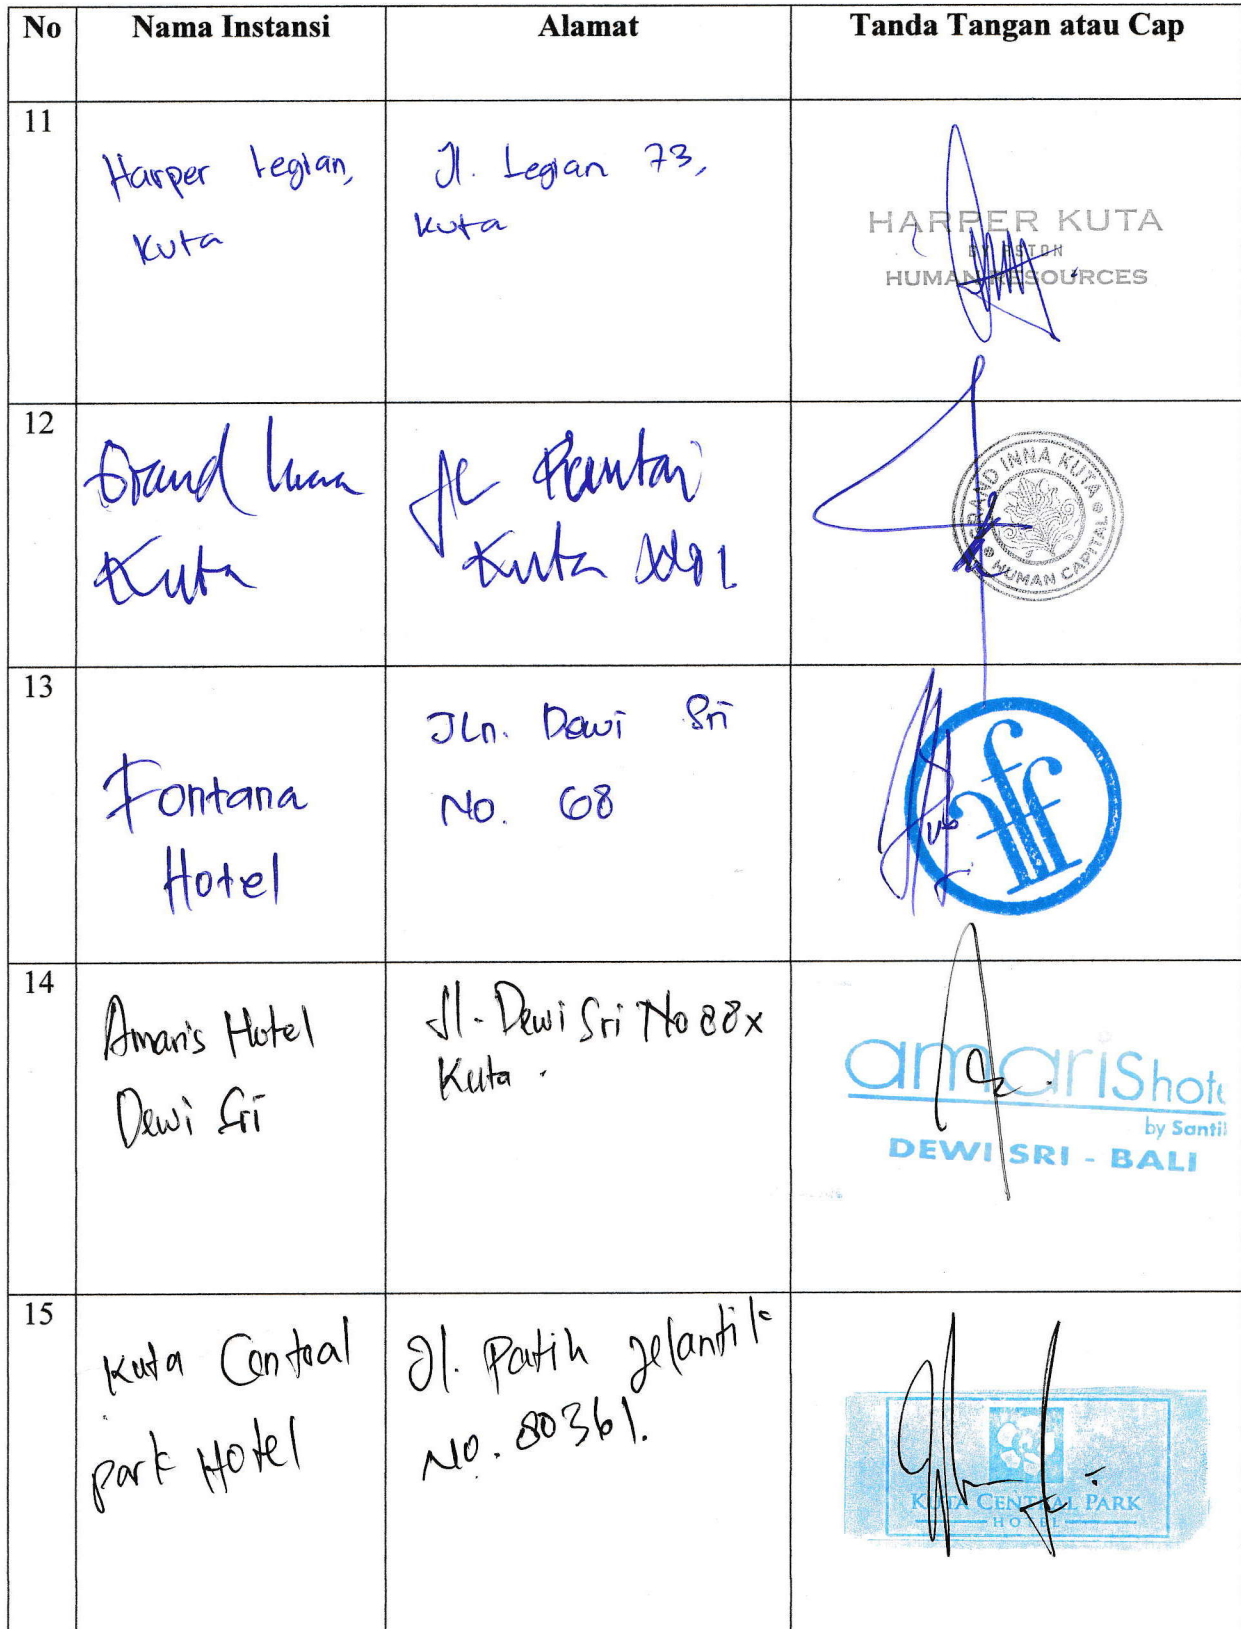 No Nama Instansi Alamat Tanda Tangan atau Cap
11
Harper Legian,
Kuta
Jl. Legian 73,
Kuta
HARPER KUTA
BY ASTON
HUMAN RESOURCES
12
Grand Inna
Kuta
Jl Pantai
Kuta
GRAND INNA KUTA
HUMAN CAPITAL
13
Fontana
Hotel
JLn. Dewi Sri
No. 68
14
Amaris Hotel
Dewi Sri
Jl. Dewi Sri No 88x
Kuta.
amarishote
by Santi
DEWI SRI - BALI
15
Kuta Central
park Hotel
Jl. Patih Jelantik
No. 80361.
KUTA CENTRAL PARK
HOTEL